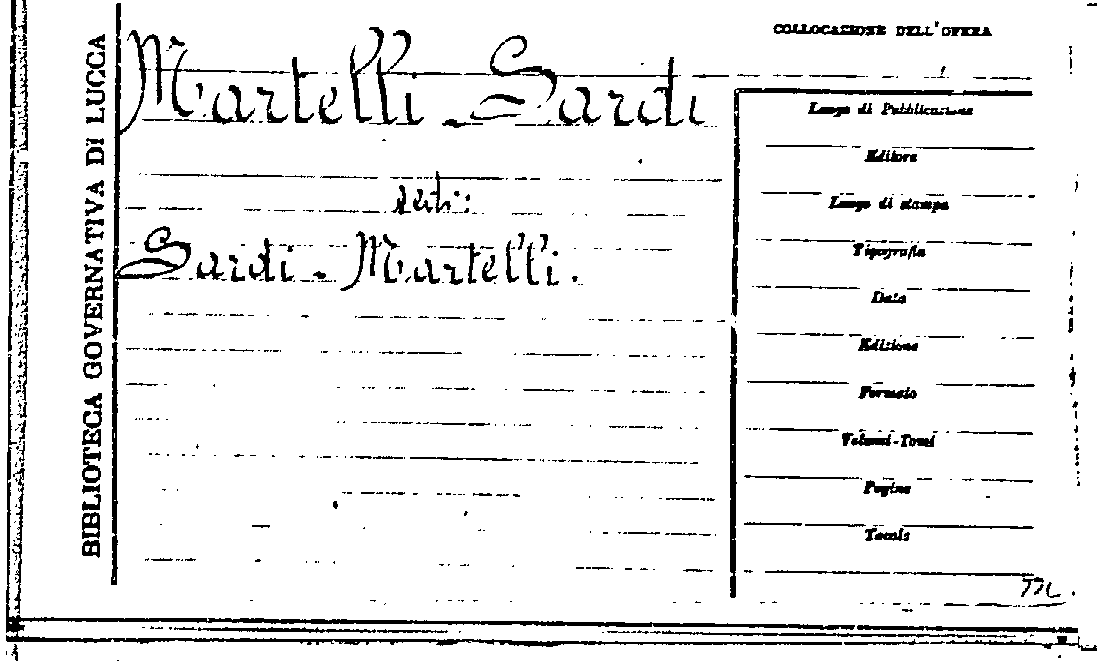 BIBLIOTECA GOVERNATIVA DI LUCCA
COLLOCAZIONE DELL'OPERA
Martelli - Sardi
vedi:
Sardi - Martelli.
Luogo di Pubblicazione
Editore
Luogo di stampa
Tipografia
Data
Edizione
Formato
Volumi-Tomi
Pagine